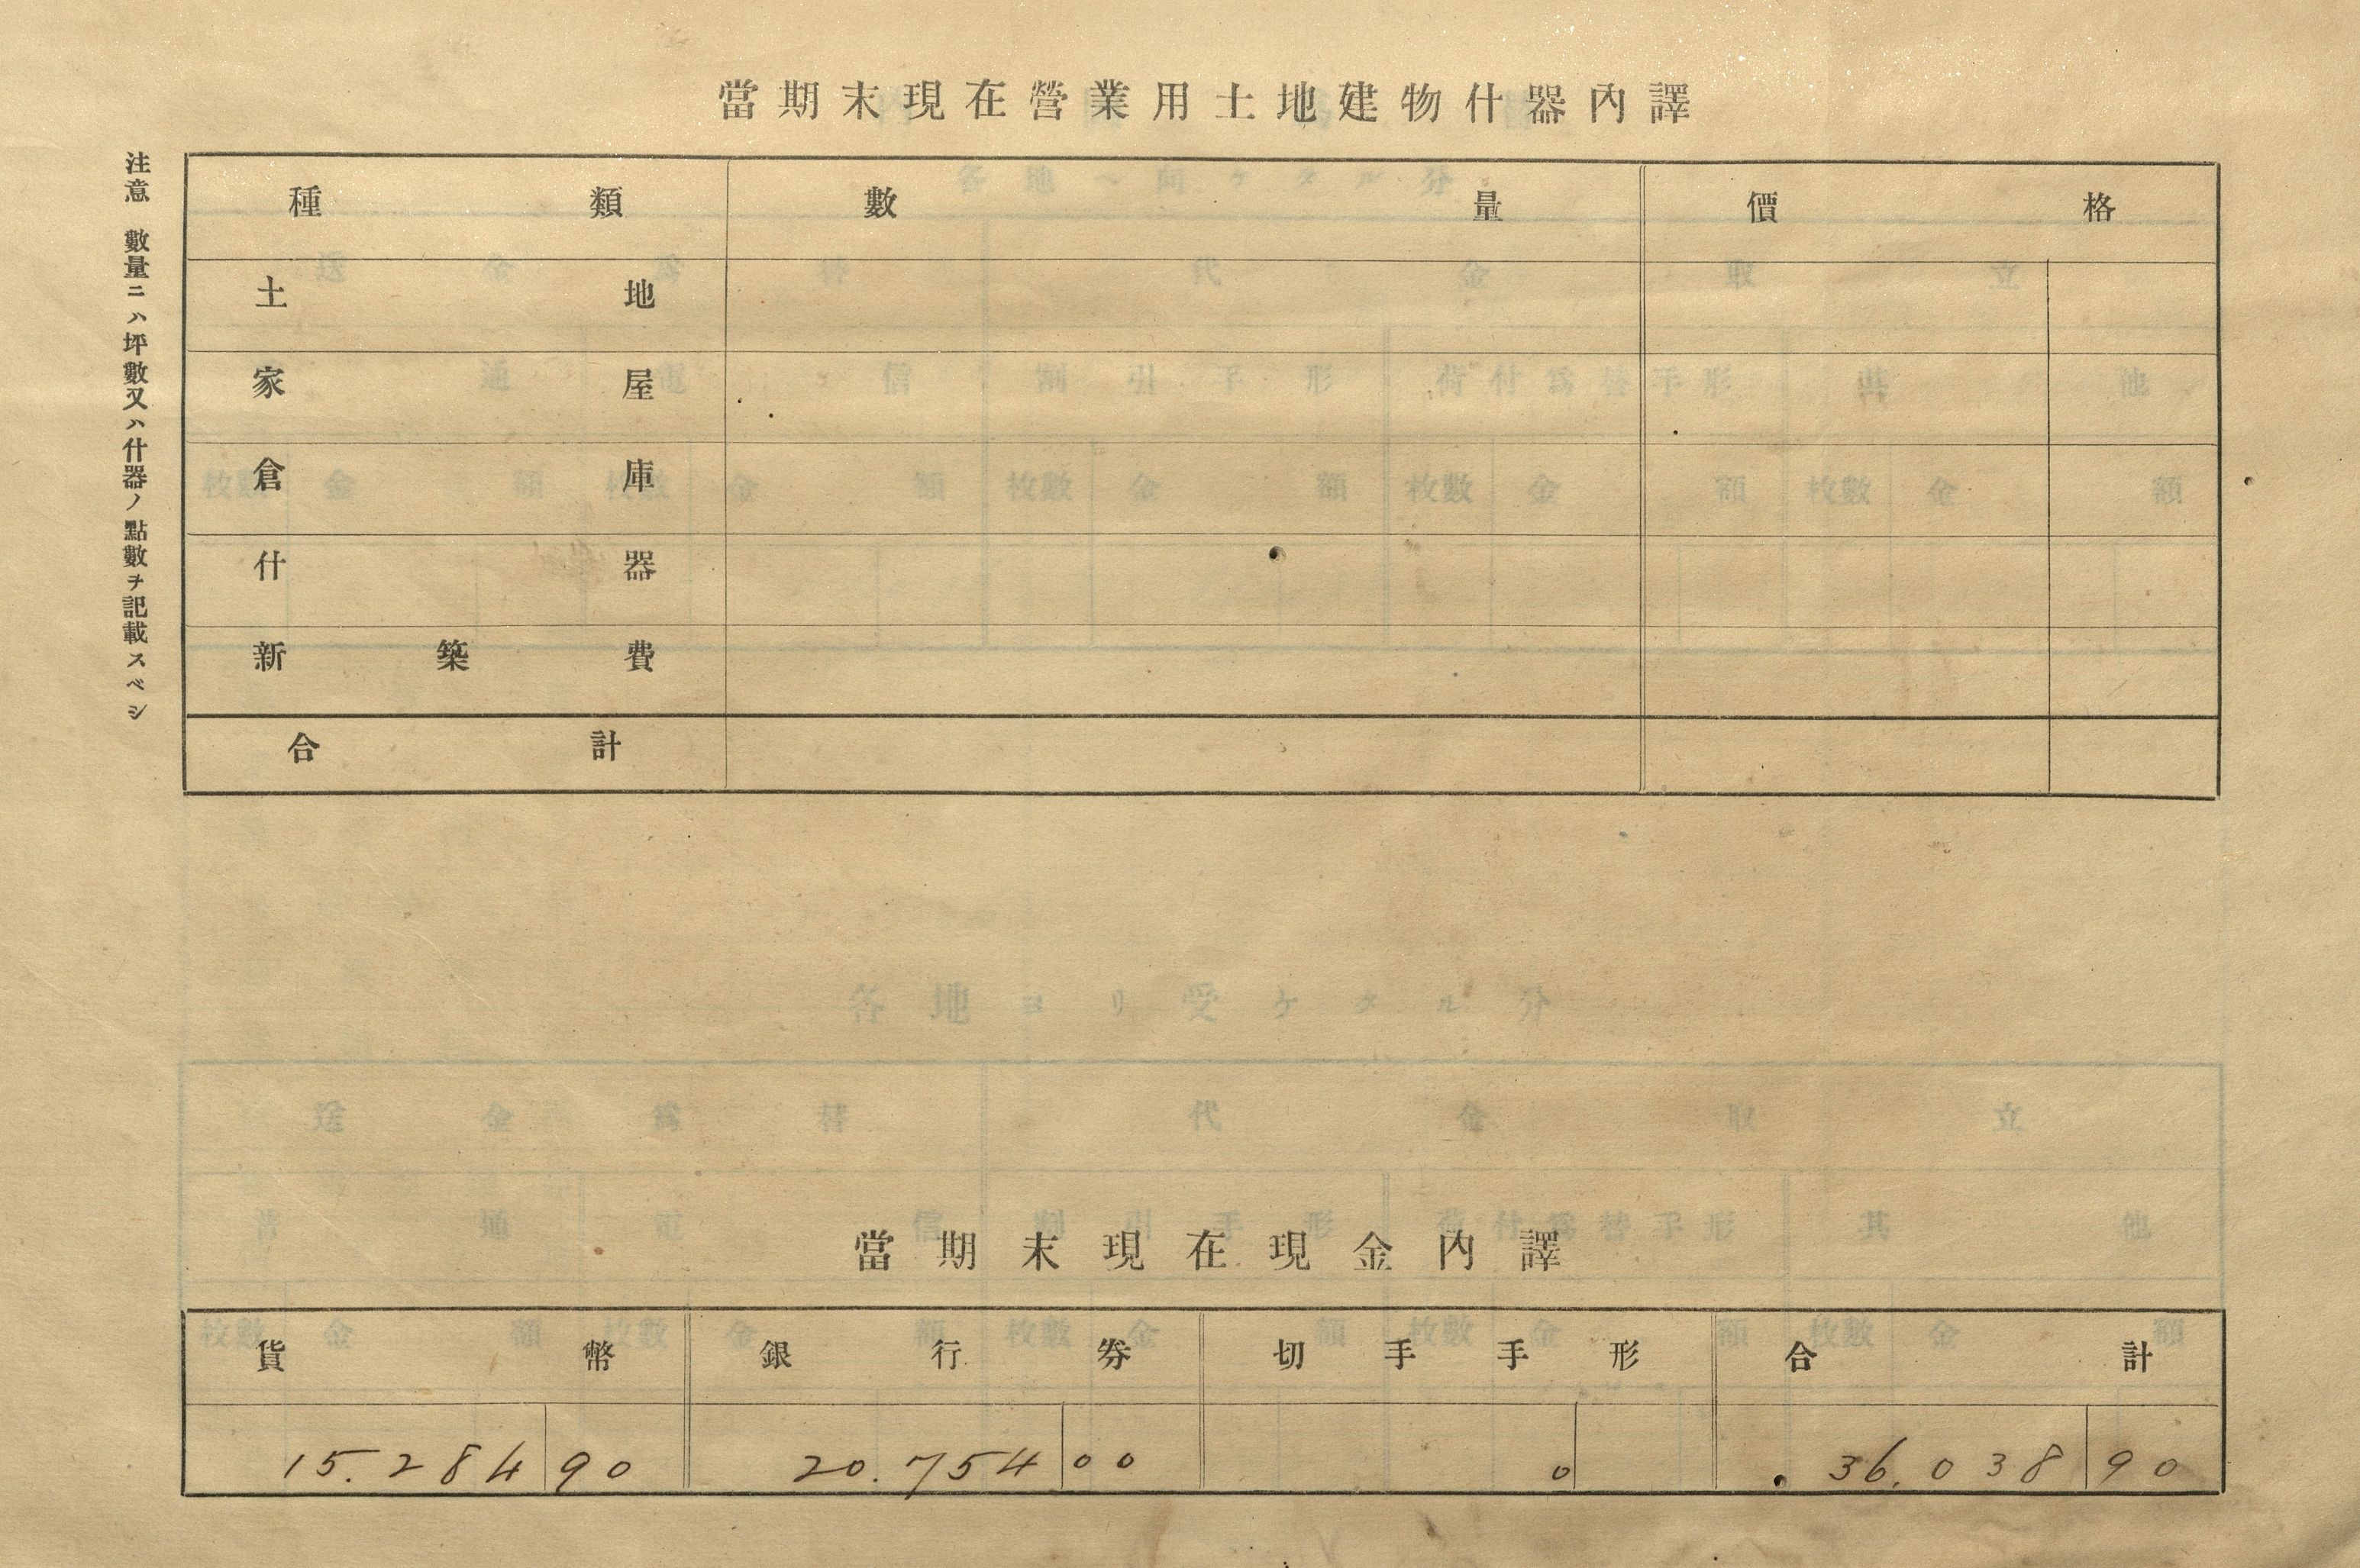 當期末現在營業用土地建物什器內譯
注意 數量ニハ坪數又ハ什器ノ點數ヲ記載スベシ
種類 數量 價格
土地
家屋
倉庫
什器
新築費
合計
各地ヨリ受ケタル分
當期末現在現金內譯
貨幣 銀行券 切手手形 合計
15.284 90 20.754 00 0 36.038 90